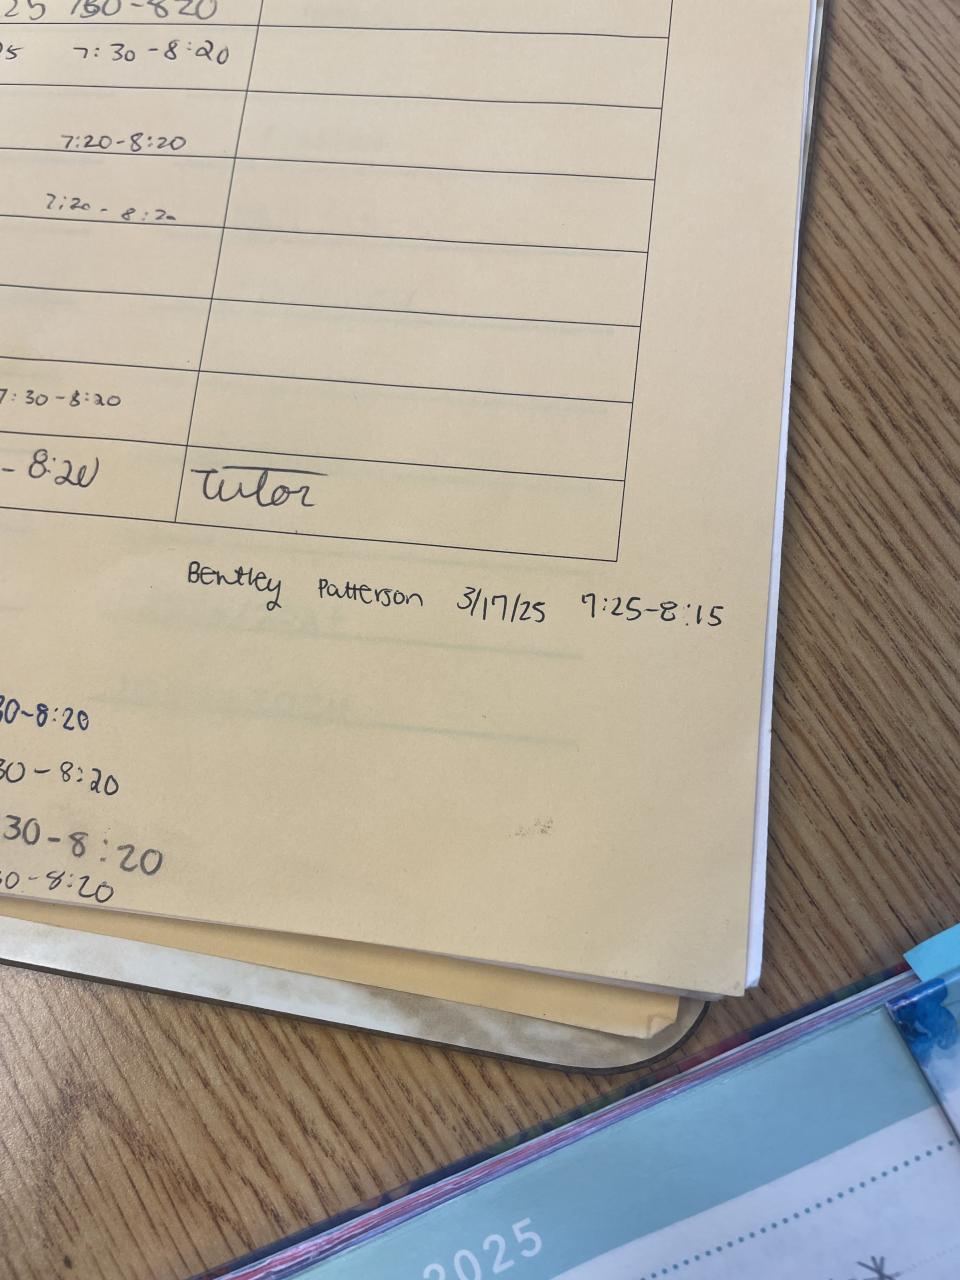 25 7:30-820
7:30-8:20
7:20-8:20
7:20-8:20
7:30-8:20
- 8:20
Tutor
Bentley Patterson 3/17/25 7:25-8:15
30-8:20
30-8:20
30-8:20
30-8:20
2025